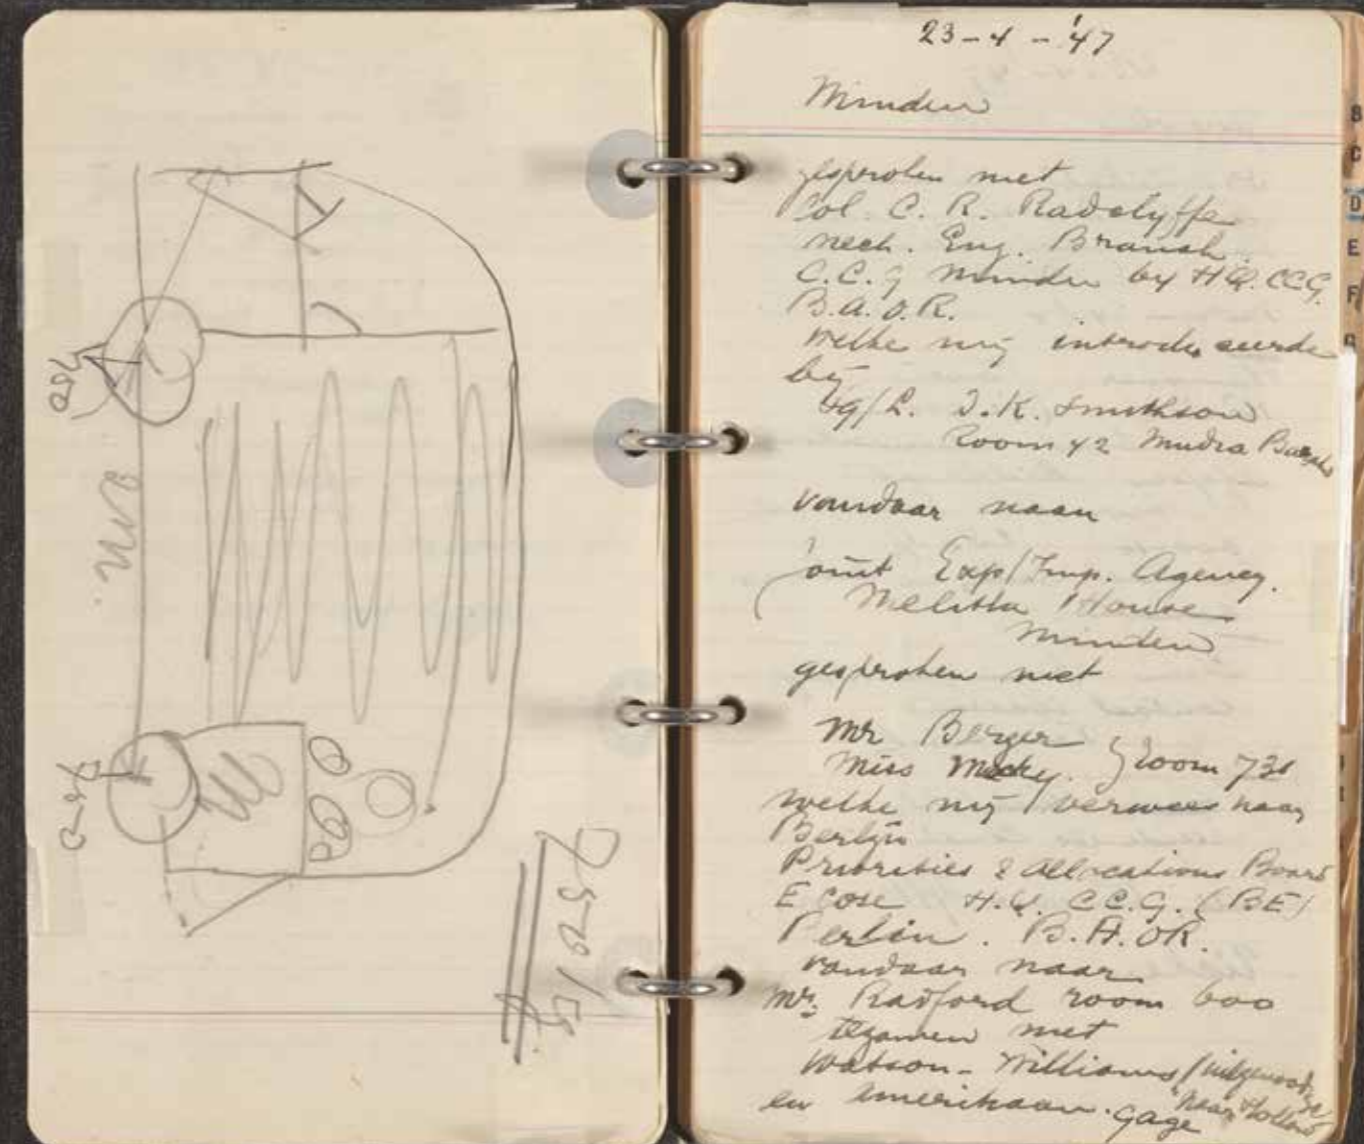 750
2 M.
750
23-4-'47
Minden
gesproken met
Col. C. R. Radclyffe
mech. Eng. Branch.
C.C.G Minden by H.Q. CCG.
B.A.O.R.
welke mij introduceerde
bij
J.K. Smithson
Room 42 Mudra
vandaar naar
Joint Exp/Imp. Agency.
Melitta House
Minden
gesproken met
Mr Berger
Miss } room 731
welke mij verwees naar
Berlijn
Priorities & Allocations Board
Ecose H.Q. C.C.G. (BE)
Berlin. B.A.OR.
vandaar naar
Mr. Radford room 600
tezamen met
Watson-Williams (uitgenodigd
naar Holland
en Amerikaan. Gage
B
C
D
E
F
G